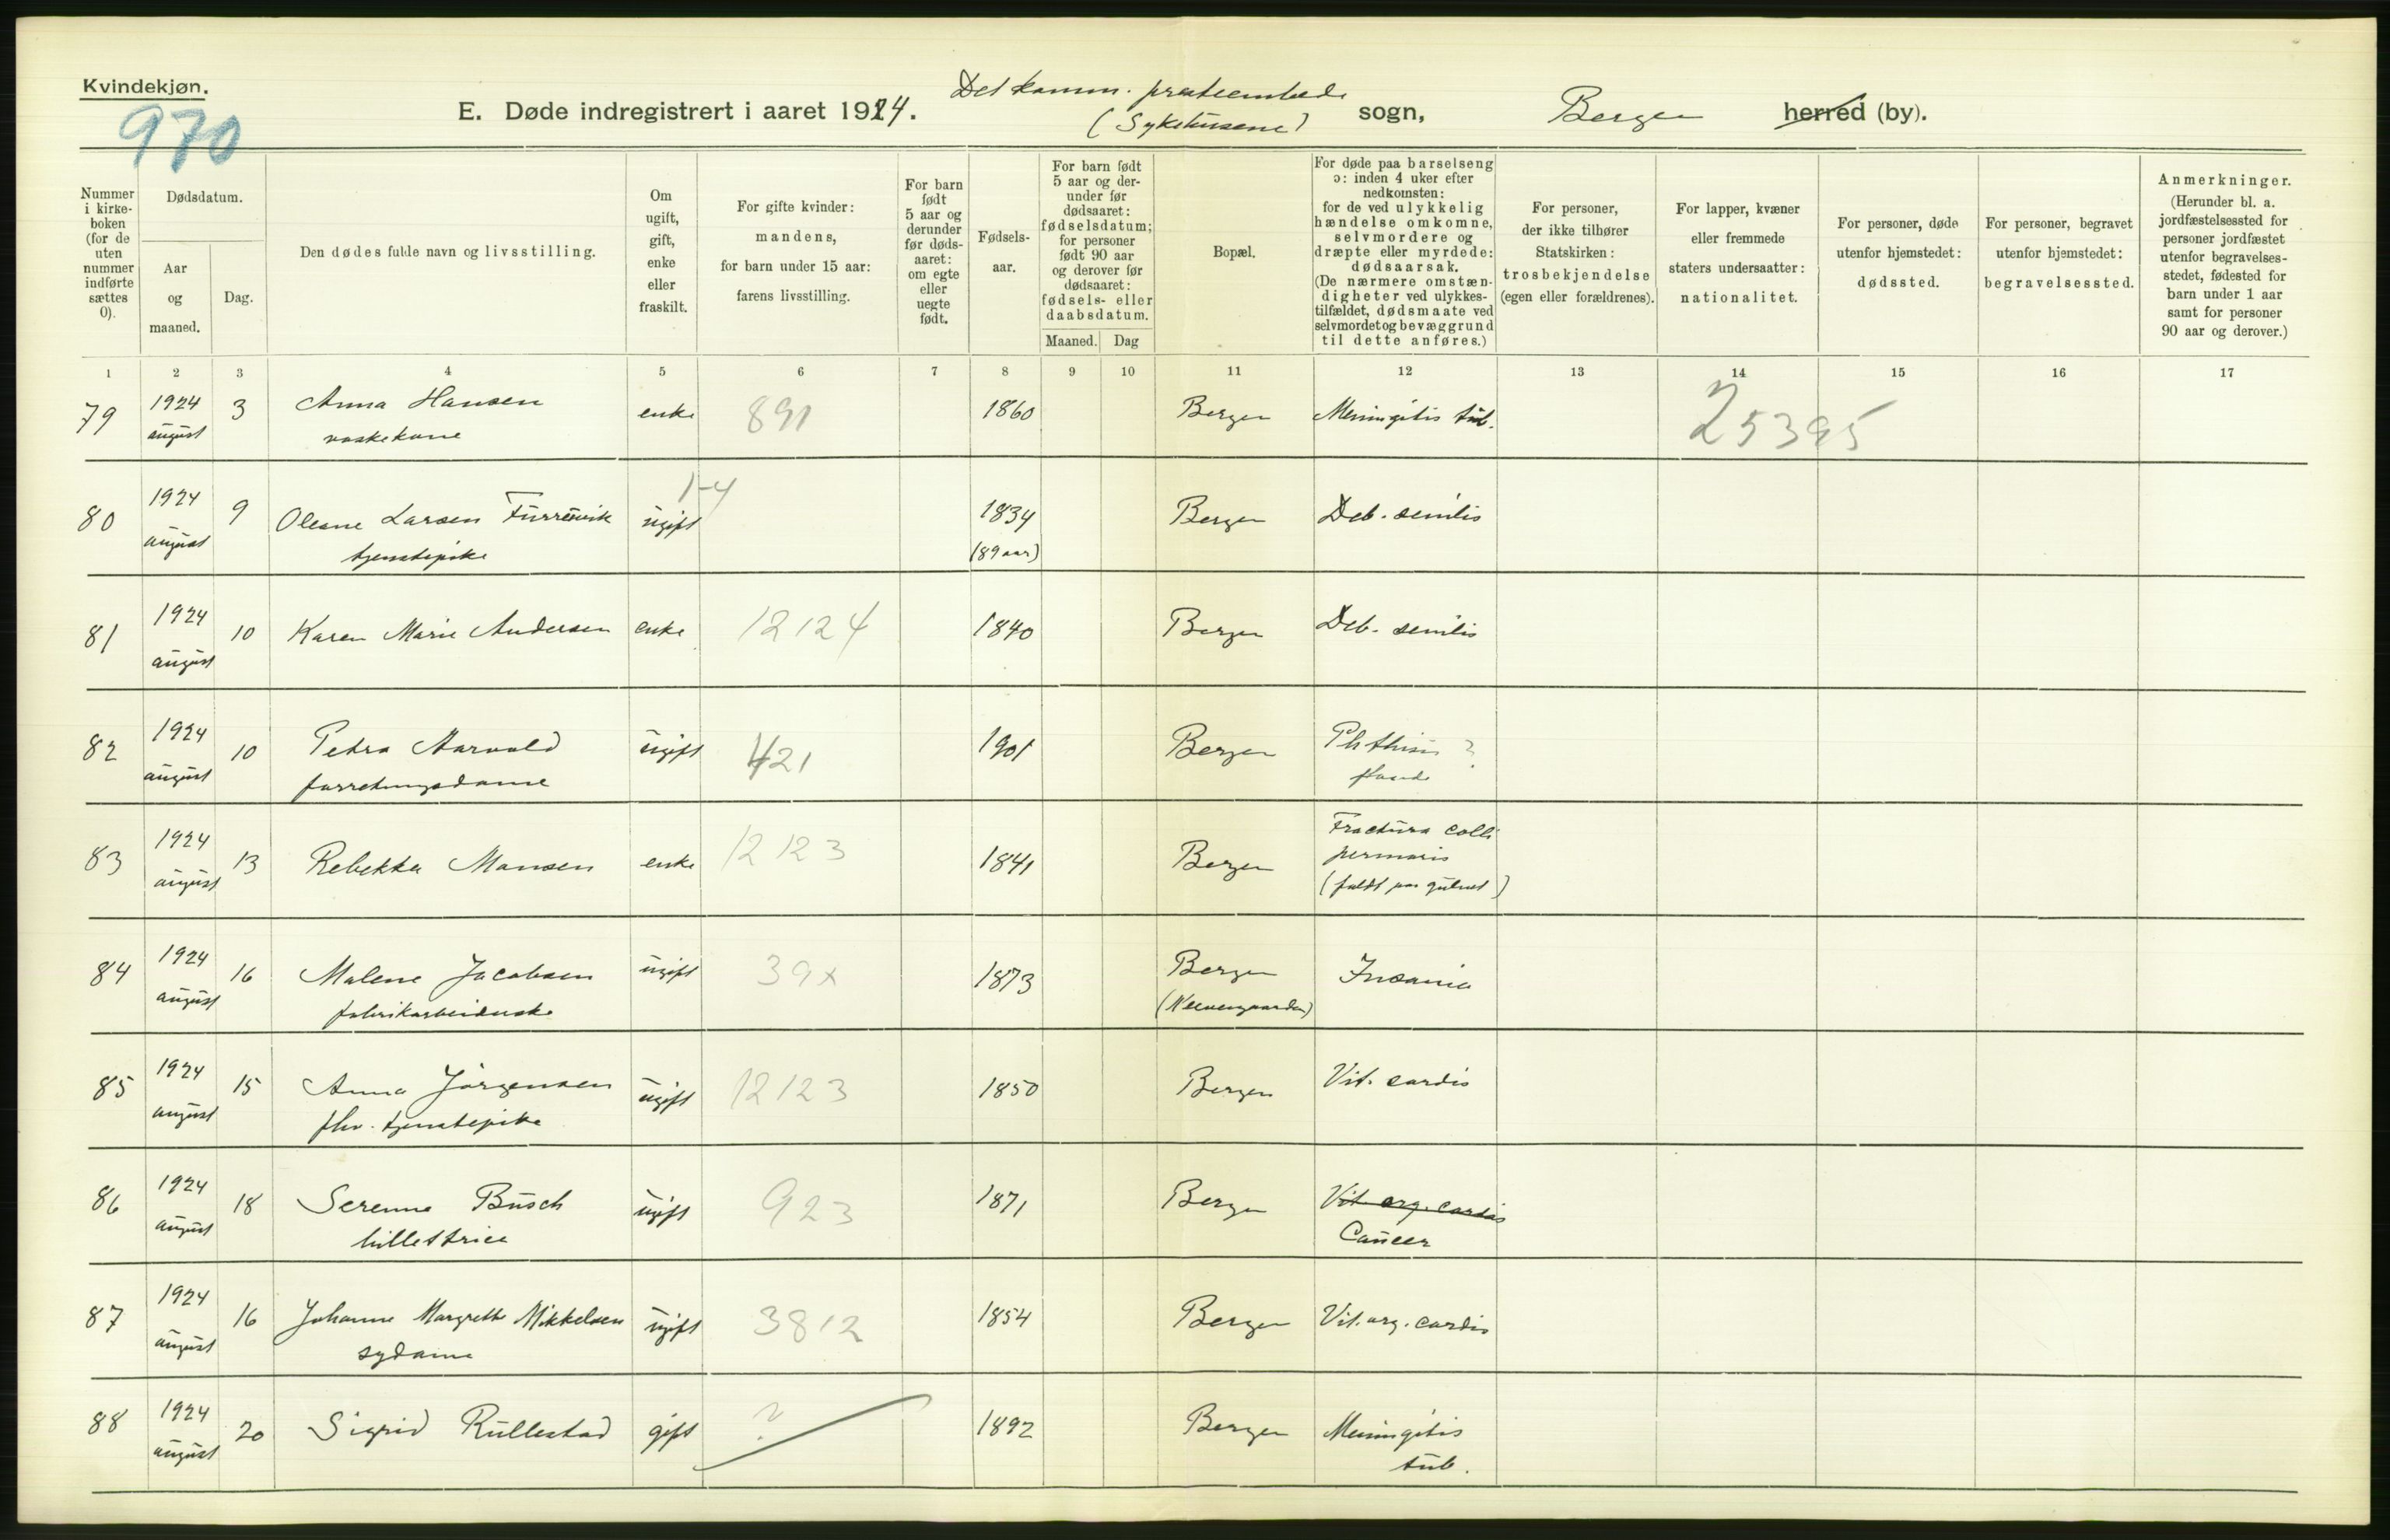 Kvindekjøn.
970
E. Døde indregistrert i aaret 1924.
Det komm. presteembede
(Sykehusene)
sogn,
Bergen
herred (by).
Nummer i kirke- boken (for de uten nummer indførte sættes 0).
Dødsdatum.
Aar og maaned.
Dag.
Den dødes fulde navn og livsstilling.
Om ugift, gift, enke eller fraskilt.
For gifte kvinder: mandens, for barn under 15 aar: farens livsstilling.
For barn født 5 aar og derunder før døds- aaret: om egte eller uegte født.
Fødsels- aar.
For barn født 5 aar og der- under før dødsaaret: fødselsdatum; for personer født 90 aar og derover før dødsaaret: fødsels- eller daabsdatum.
Maaned.
Dag
Bopæl.
For døde paa barselseng ɔ: inden 4 uker efter nedkomsten: for de ved ulykkelig hændelse omkomne, selvmordere og dræpte eller myrdede: dødsaarsak. (De nærmere omstæn- digheter ved ulykkes- tilfældet, dødsmaate ved selvmordet og bevæggrund til dette anføres.)
For personer, der ikke tilhører Statskirken: trosbekjendelse (egen eller forældrenes).
For lapper, kvæner eller fremmede staters undersaatter: nationalitet.
For personer, døde utenfor hjemstedet: dødssted.
For personer, begravet utenfor hjemstedet: begravelsessted.
Anmerkninger. (Herunder bl. a. jordfæstelsessted for personer jordfæstet utenfor begravelses- stedet, fødested for barn under 1 aar samt for personer 90 aar og derover.)
1 2 3 4 5 6 7 8 9 10 11 12 13 14 15 16 17
79 1924 august 3 Anna Hansen enke 891 1860 Bergen Meningitis tub. 25395
vaskekone
80 1924 august 9 Oleane Larsen Furrevik ugift 1-4 1834 Bergen Deb. senilis
tjenestepike (89 aar)
81 1924 august 10 Karen Marie Andersen enke 12124 1840 Bergen Deb. senilis
82 1924 august 10 Petra Aarvold ugift 421 1901 Bergen Phthisis ?
forretningsdame
83 1924 august 13 Rebekka Monsen enke 12123 1841 Bergen Fractura colli
(faldt paa gulvet)
84 1924 august 16 Malene Jacobsen ugift 39x 1873 Bergen Insania
fabrikarbeiderske (Neevengaarden)
85 1924 august 15 Anna Jörgensen ugift 12123 1850 Bergen Vit. cordis
fhv. tjenestepike
86 1924 august 18 Serenne Busch ugift 923 1871 Bergen Vit. org. cordis
billettrice Cancer
87 1924 august 16 Johanne Margrethe Mikkelsen ugift 3812 1854 Bergen Vit. org. cordis
sydame
88 1924 august 20 Sigrid Rullestad gift ? 1892 Bergen Meningitis
tub.